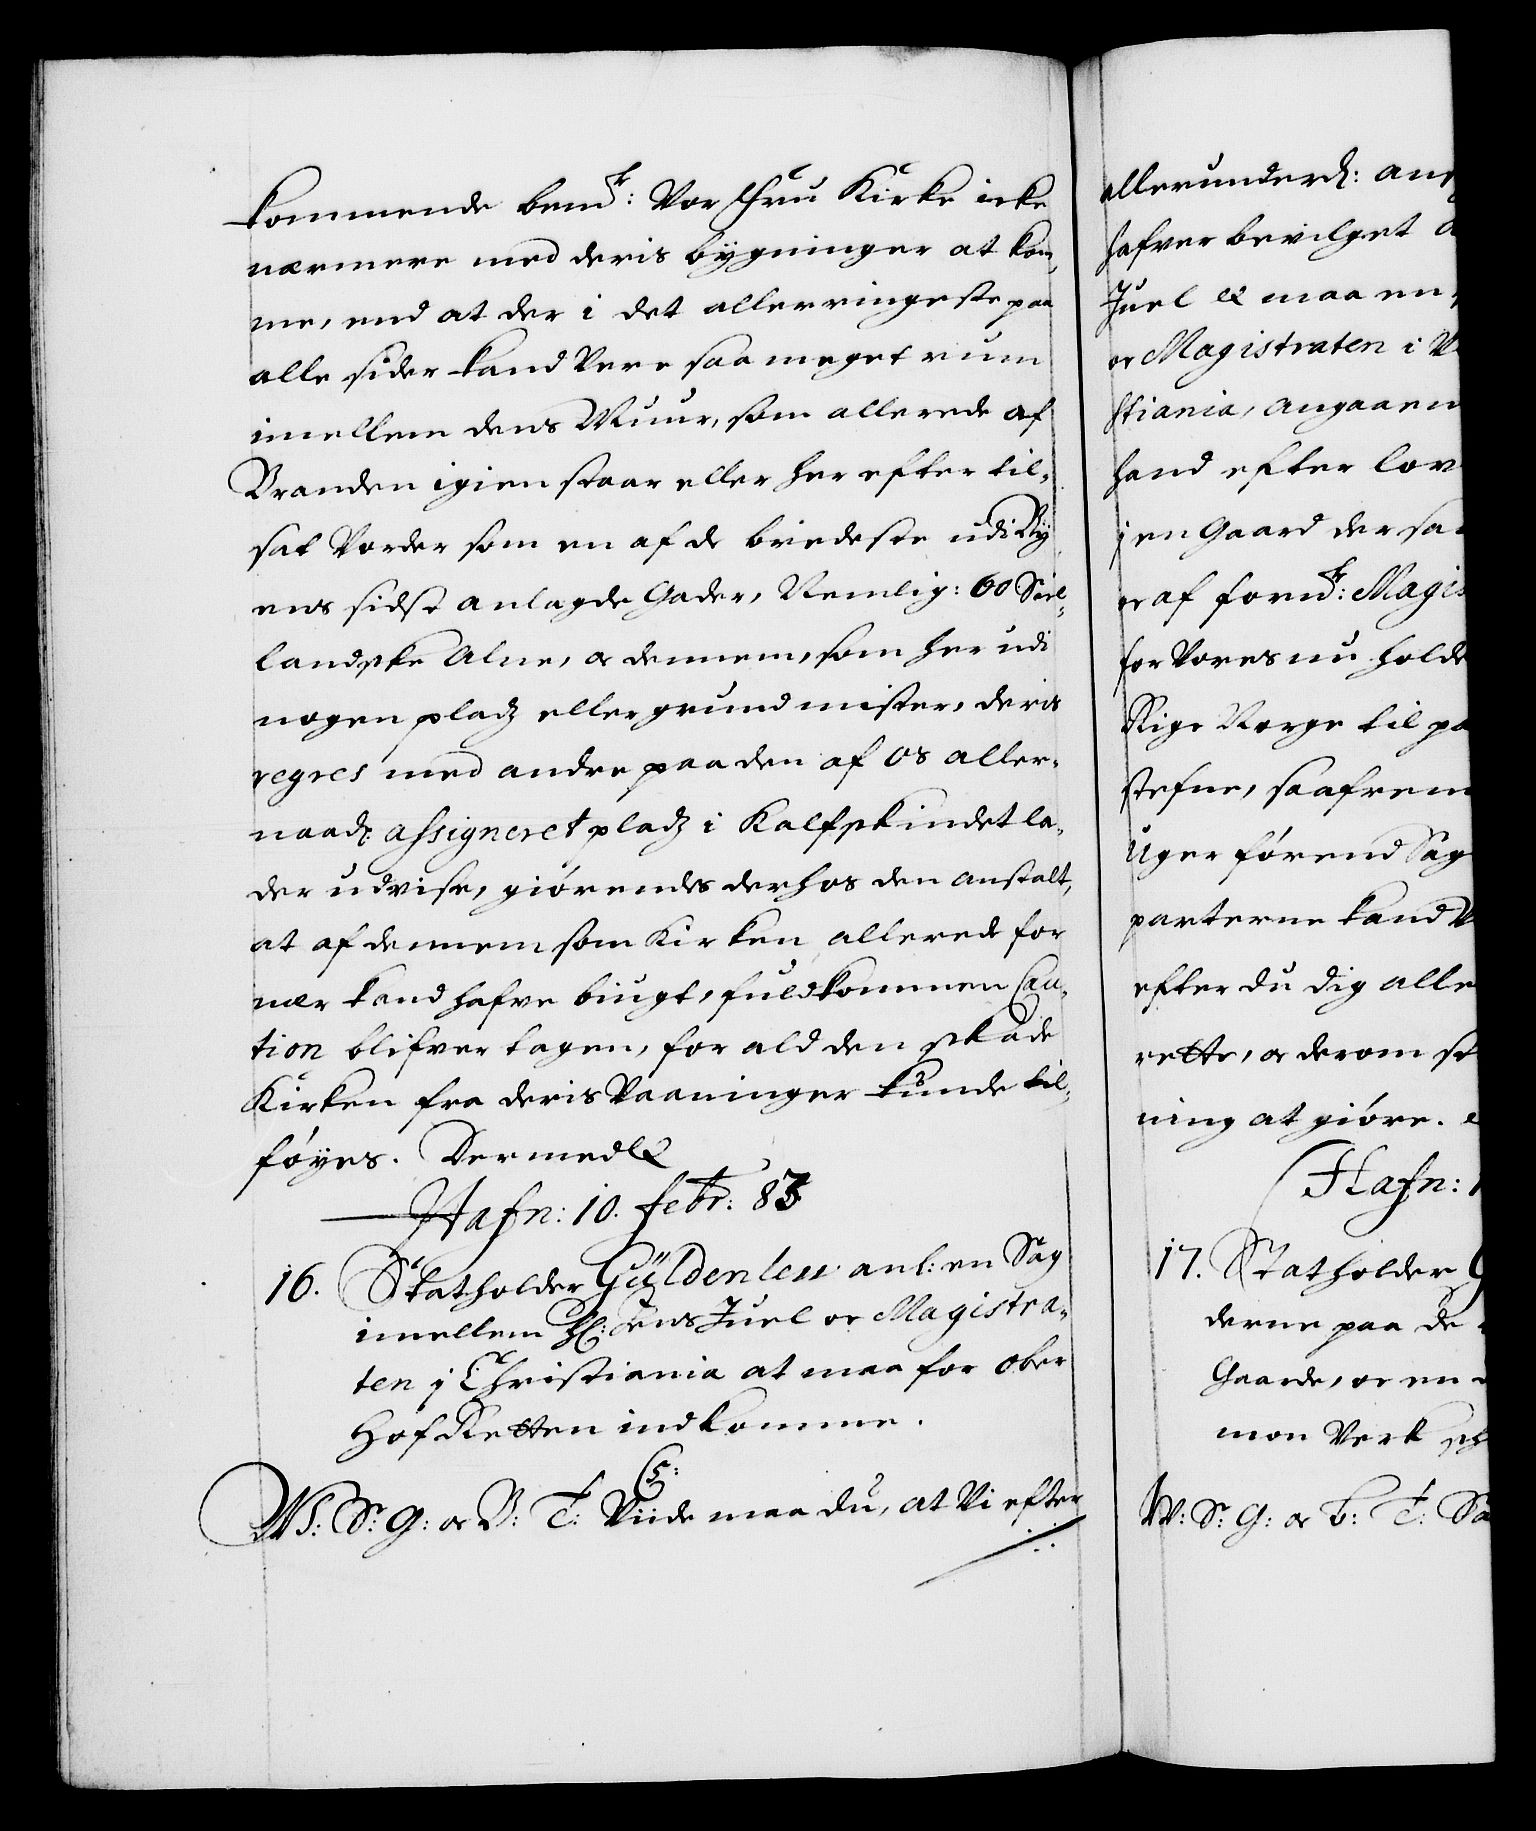 kommende bem.te: Vor Fru Kirke icke
nærmere med deris bygninger at kom,
me, end at der i det allerringeste paa
alle sider kand Være saa meget rum
imellem dens Muur, som allerede af
Branden igien staar eller her efter til,
sat Vorder som en af de bredeste udi By
ens sidst anlagde Gader, Nemlig: 60 Siel,
landske Alne, oc dennem, som her udi
nogen pladz eller grund mister, deris
regres med andre paa den af os aller,
naad. assigneret pladz i Kalfskindet la,
der udvise, giörendes derhos den anstalt,
at af dennem som Kirken allerede for
nær kand hafve biugt, fuldkommen Cau,
tion blifver tagen, for ald den skade
Kirken fra deris Vaaninger kunde til,
föyes. Dermed &
Hafn: 10. febr: 83
16. Statholder Güldenleu anl: en Sag
imellem Hl: Jens Juel oc Magistra,
ten j Christiania at maa for Ober
Hof Retten indkomme.
C5:
W: S: G: oc B: T: Viide maa du, at Vi efter
allerunderd: ans
hafver bevilget
Juel & maa en,
oc Magistraten i
stiania, angaaen
hand efter lov
j en Gaard der sa
oc af form.te: Magis
for Vores nu holde
Rige Norge til
stefne, saafrem
Uger förend Sag
parterne kand
efter du dig alle
rette, oc derom
ning at giöre.
Hafn:
17. Statholder G
derne paa de
Gaarde, oc en
mon Verk
W: S: G: oc b: T: